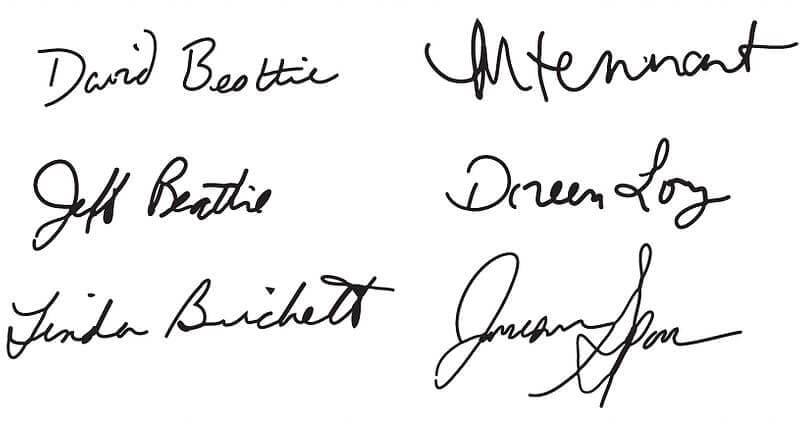 David Beattie
MTennant
Jeff Beattie
Doreen Loy
Linda Birchett